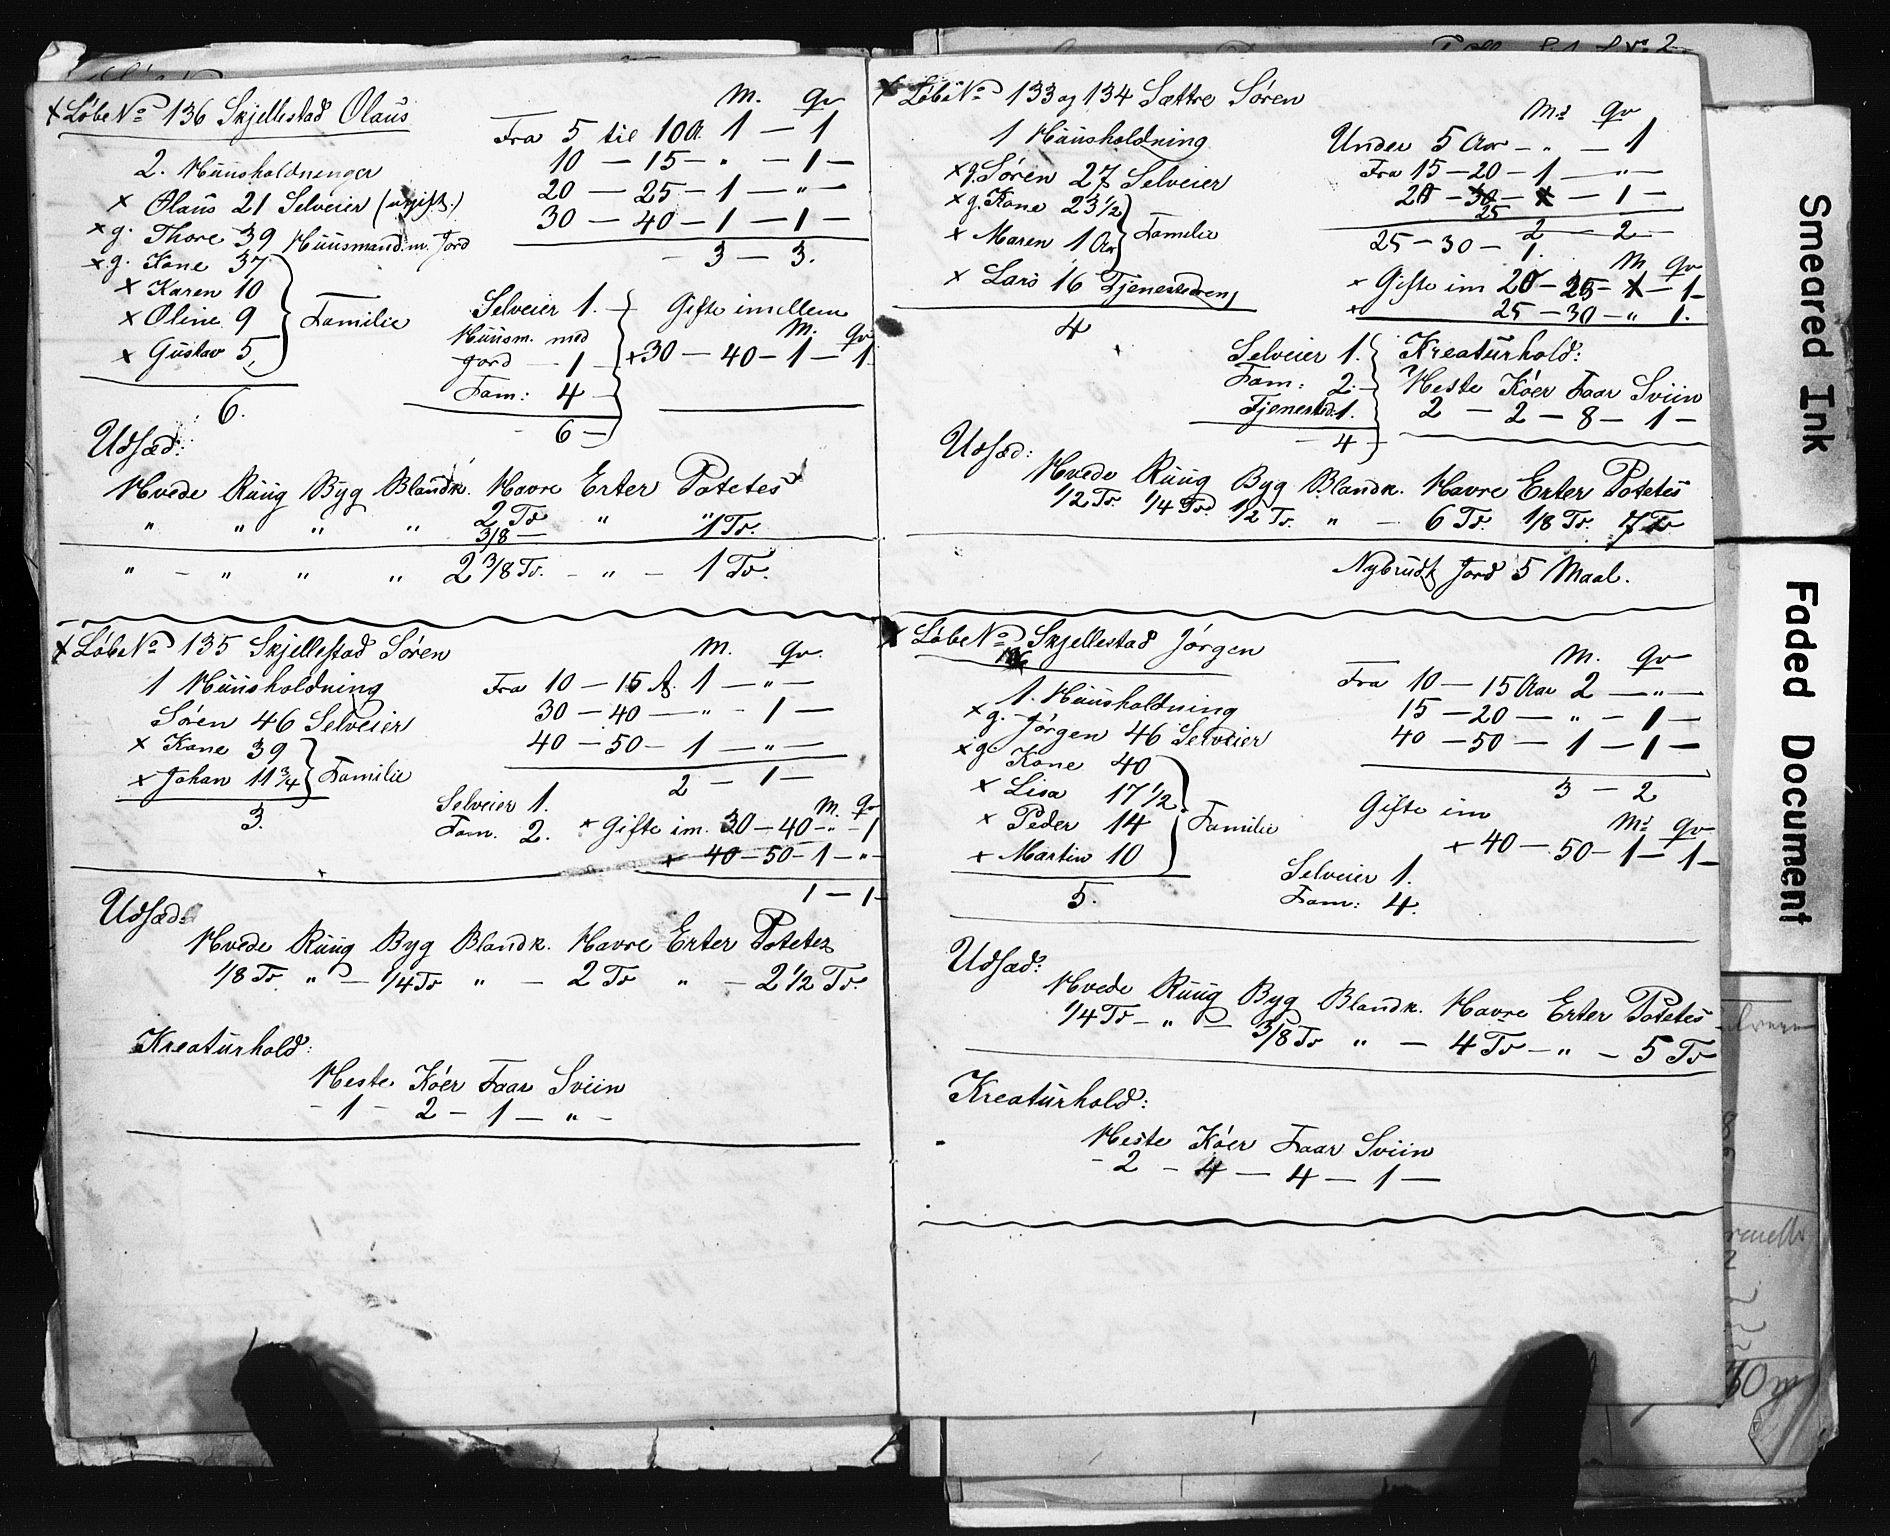 x Løbe No 136 Skjellestad Olaus
M. Qv
Fra 5 til 10 A. 1 — 1
10 — 15 — " — 1 —
2. Huusholdninger
20 — 25 — 1 — " —
x Olaus 21 Selveier (ugift.)
30 — 40 — 1 — 1 —
x g. Thore 39 Huusmand m. Jord
- 3 — 3.
x g. Kone 37
x Karen 10
x Oline 9
x Gustav 5.
Familie
6.
Selveier 1. —
Huusm. med
Jord — 1 —
Fam: 4 —
- 6 —
Gifte imellem
M. Qv
x 30 — 40 — 1 — 1
Udsæd:
Hvede Ruug Byg Blandk. Havre Erter Potetes
" " " " 2 Tr " " 1 Tr.
3/8 —
" — " " " 2 3/8 Tr. — " — 1 Tr.
x Løbe No 135 Skjellestad Sören
M. Qv.
1 Huusholdning
Fra 10 — 15 A. 1 — " —
Sören 46 Selveier
30 — 40 — " - 1 —
x Kone 39
40 — 50 — 1 — " —
x Johan 11 3/4
Familie
2 — 1 —
3.
Selveier 1.
Fam. 2.
M. Qv
x Gifte im. 30 — 40 — " — 1
x 40 — 50 — 1 — " -
1 — 1 -
Udsæd:
Hvede Ruug Byg Blandk. Havre Erter Potetes
1/8 Tr. " — 1/4 Tr " — 2 Tr " — 2 1/2 Tr.
Kreaturhold:
Heste Köer Faar Sviin
- 1 - 2 - 1 — " —
x Løbe No 133 og 134 Sættre Sören
M: Qv
1 Huusholdning
Under 5 Aar — " — 1
x g. Sören 27 Selveier
Fra 15 — 20 — 1 — " —
x g. Kone 23 1/2
20 — 30 — 1 — 1 —
25
x Maren 1 Aar
Familie
2 — 2 —
25 — 30 — 1.
x Lars 16 Tjenestedreng
4
M Qv
x Gifte im 20 — 25 — 1 — 1 -
x 25 — 30 — " 1.
Selveier 1.
Fam: 2. —
Tjenested. 1.
- 4 —
Kreaturhold:
Heste Köer Faar Sviin
2 — 2 — 8 — 1 —
Udsæd:
Hvede Ruug Byg Blandk. Havre Erter Potetes
1/2 Tr. 1/4 Tr. 1/2 Tr. " — 6 Tr. 1/8 Tr. 7 Tr
Nybrudt Jord 5 Maal.
x Løbe No Skjellestad Jörgen
M. Qv
1. Huusholdning
Fra 10 — 15 Aar 2 — " —
x g. Jörgen 46 Selveier
15 — 20 — " — 1 —
x g. Kone 40
40 — 50 — 1 — 1 —
x Lisa 17 1/2
3 — 2
x Peder 14
x Martin 10
Familie
5.
Gifte im
M: Qv
x 40 — 50 — 1 — 1 —
Selveier 1.
Fam: 4.
Udsæd:
Hvede Ruug Byg Blandk. Havre Erter Potetes
1/4 Tr — " — 3/8 Tr " — 4 Tr — " — 5 Tr
Kreaturhold:
Heste Köer Faar Sviin
- 2 — 4 — 4 — 1 —
Smeared Ink
Faded Document